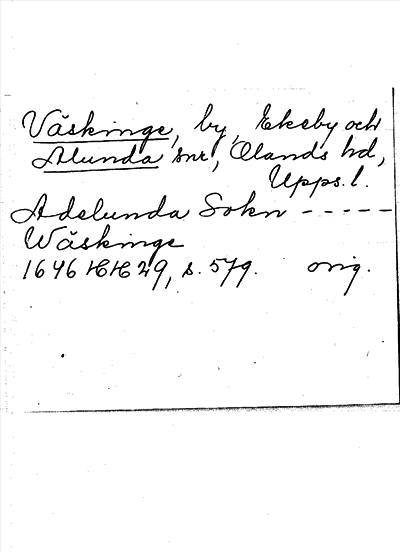 Väskinge, by, Ekeby och
Alunda snr, Olands hd,
Upps. l.
Adelunda Sokn -----
Wäskinge
1646 HH 29, s. 579. orig.